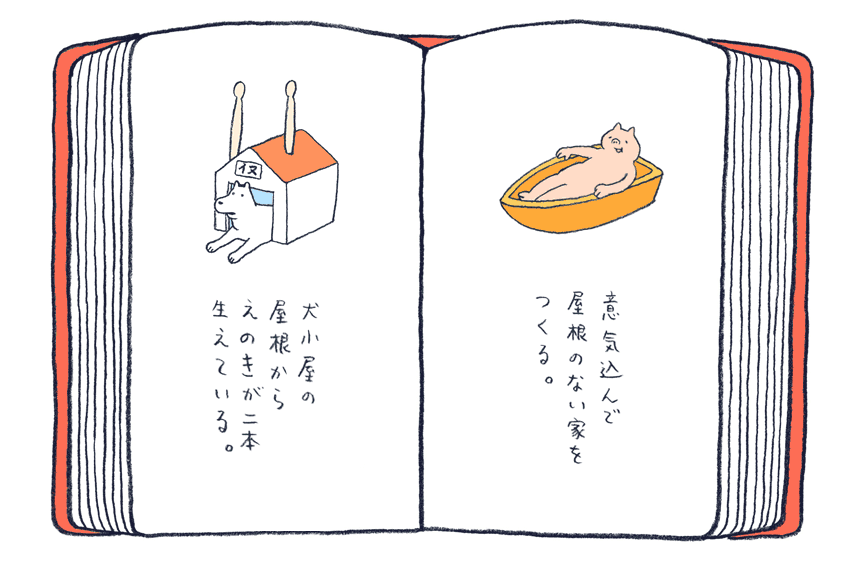 意気込んで
屋根のない家を
つくる。
イヌ
犬小屋の
屋根から
えのきが二本
生えている。